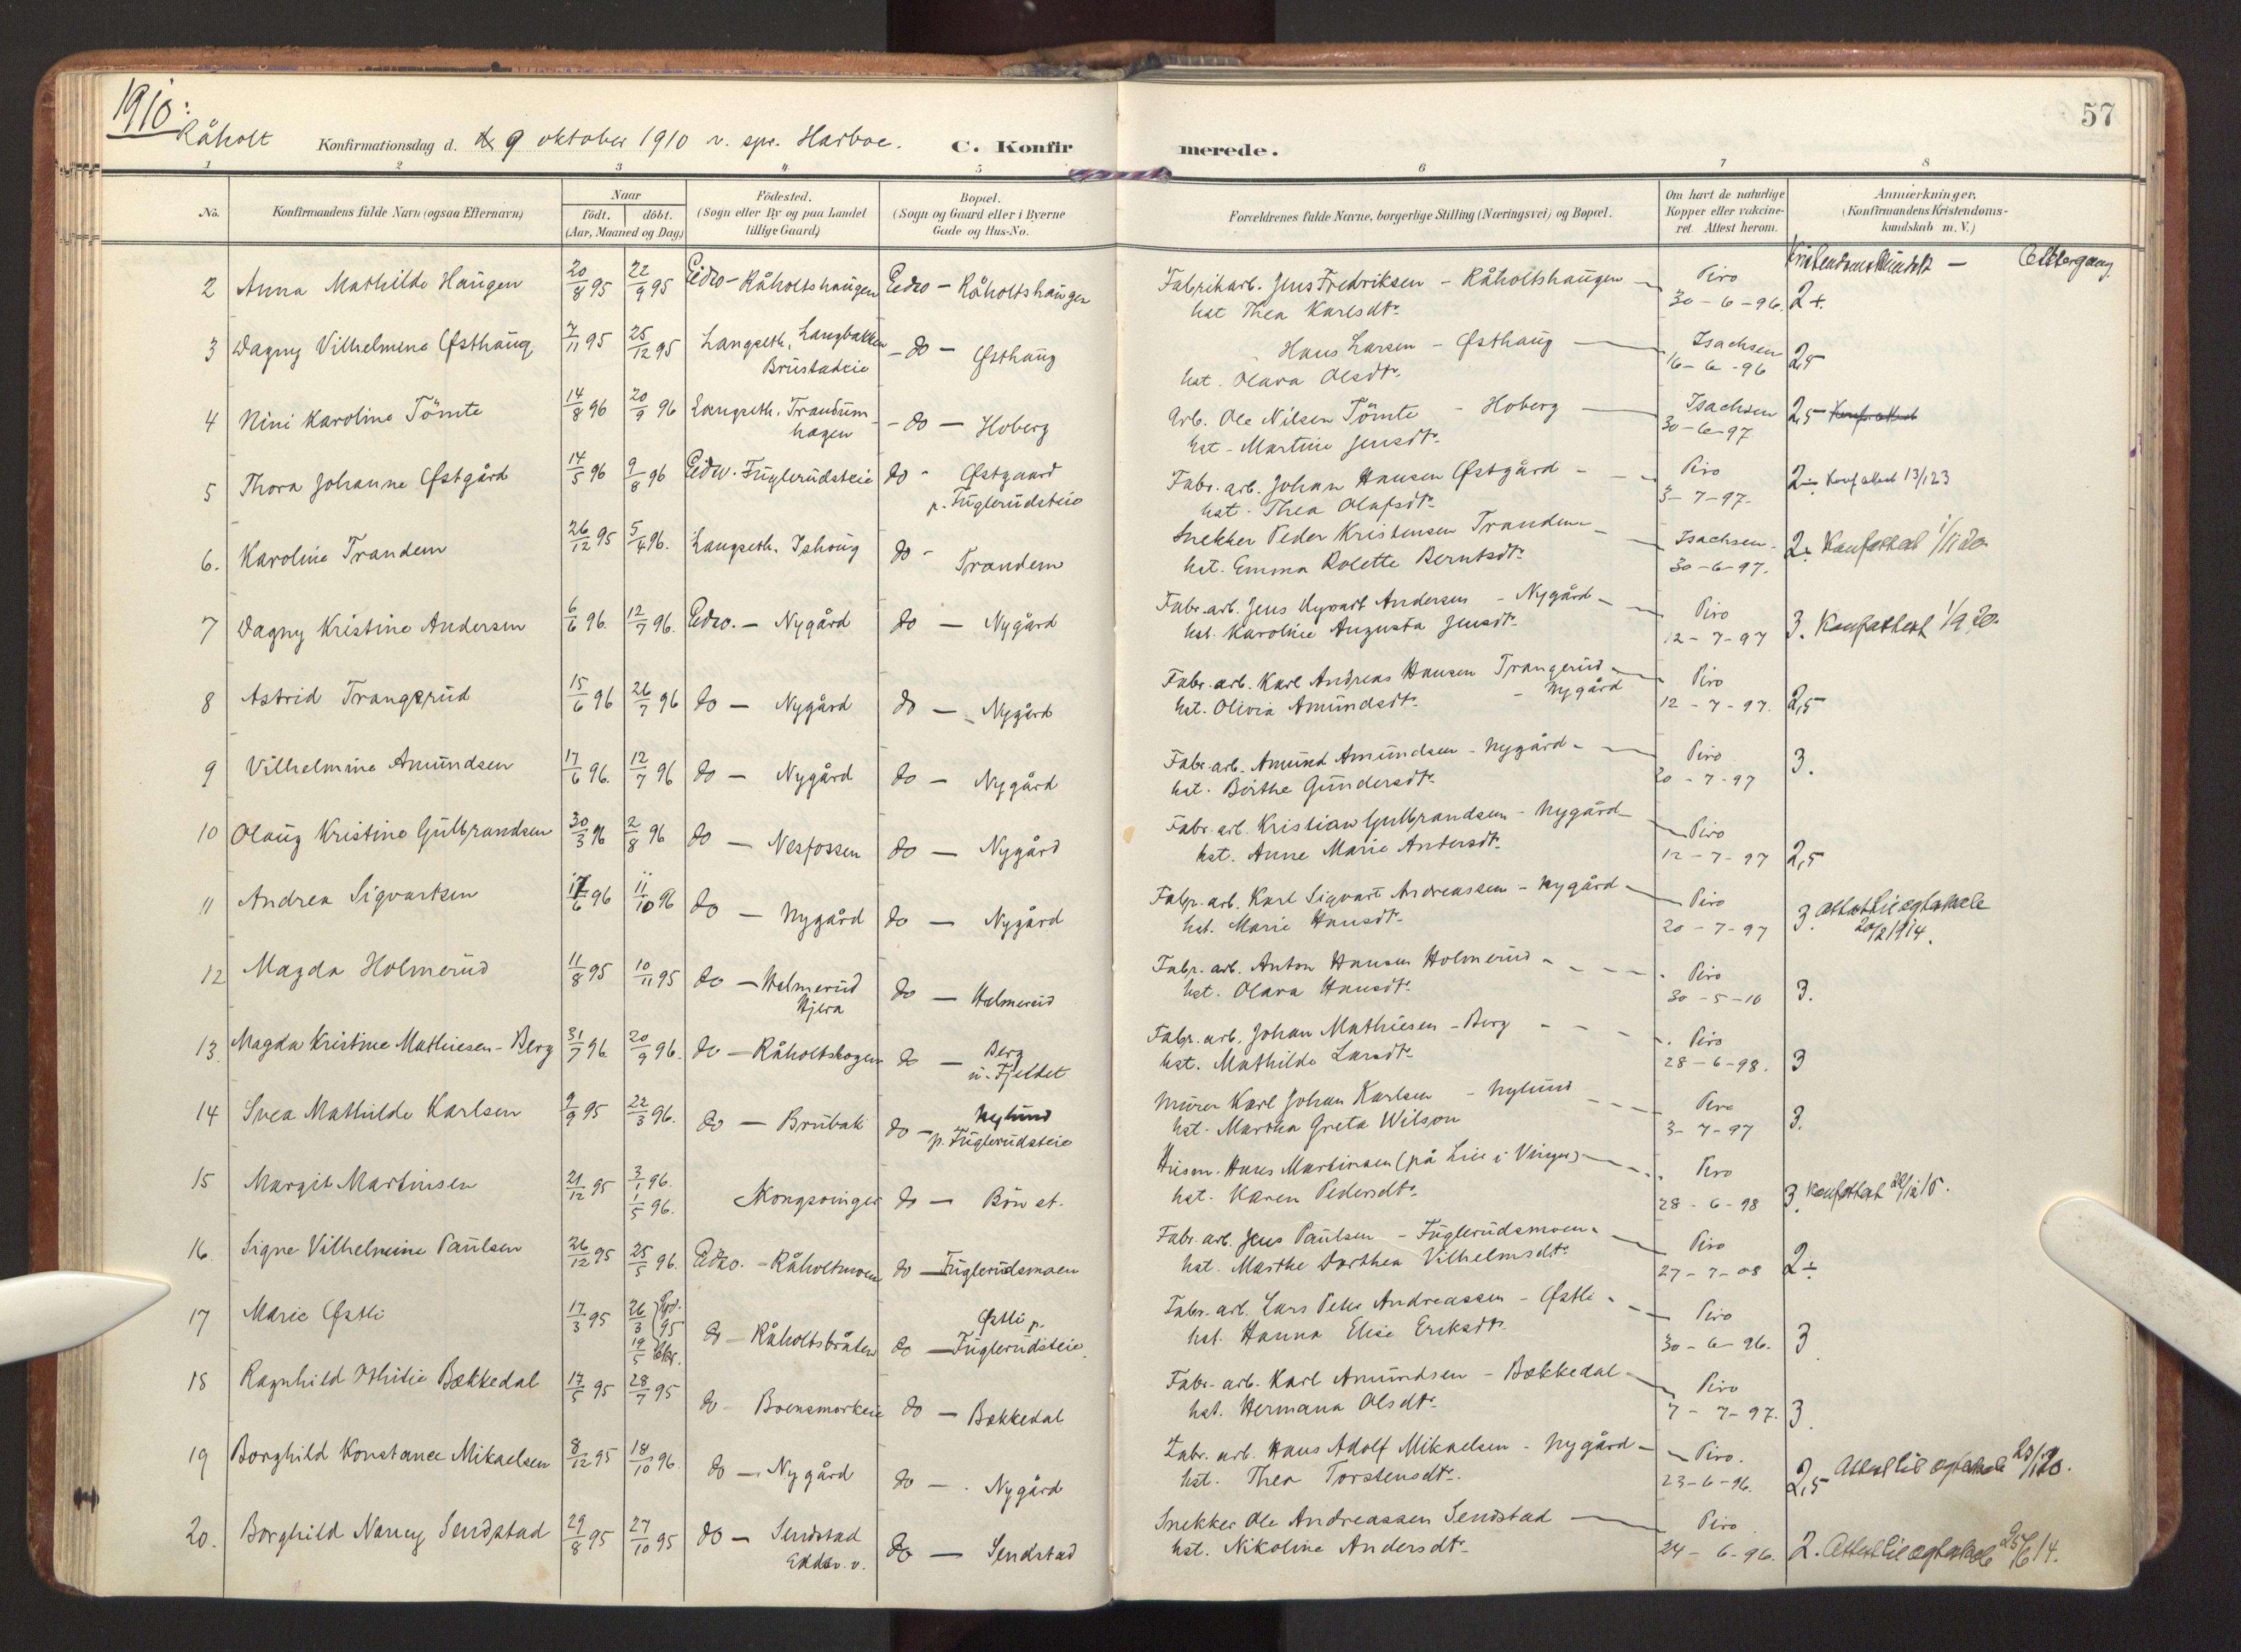 1910:
57
Råholt Konfirmationsdag d. 9 oktober 1910 v. spr. Harboe. C. Konfirmerede.
1 2 3 4 5 6 7 8
No. Konfirmandens fulde Navn (ogsaa Efternavn) Naar födt. döbt. (Aar, Maaned og Dag.) Födested. (Sogn eller By og paa Landet tillige Gaard) Bopæl. (Sogn og Gaard eller i Byerne Gade og Hus-No. Forældrenes fulde Navne, borgerlige Stilling (Næringsvei) og Bopæl. Om havt de naturlige Kopper eller vakcineret. Attest herom. Anmærkninger. (Konfirmandens Kristendomskundskab m. V.)
2 Anna Mathilde Haugen 20/8 95 22/9 95 Eidsv - Råholtshaugen Eidsv - Råholtshaugen Fabrikarb. Jens Fredriksen - Råholtshaugen Piro
hst Thea Karlsdtr. 30-6-96. 2+
3 Dagny Vilhelmine Østhaug 7/11 95 25/12 95 Langseth, Langbakken Brustadeie - do - Østhaug Hans Larsen - Østhaug Isachsen
hst. Olava Olsdtr. 16-6-96 2,5
4 Nini Karoline Tömte 14/8 96 20/9 96 Langseth. Trandumhagen - do - Hoberg Arb. Ole Nilsen Tömte - Hoberg Isachsen
hst - Martine Jensdtr. 30-6-97 2,5
5 Thora Johanne Østgård 14/5 96 9/8 96 Eidsv. Fuglerudsteie do - Østgaard p. Fuglerudsteie Fabr. arb. Johan Hansen Østgård Piro
hst. Thea Olafsdtr. 3-7-97. 2÷ Konf attest 13/1 23
6. Karoline Trandem 26/12 95 5/4 96. Langseth. Ishoug do - Trandem Snekker Peder Kristensen Trandem Isachsen
hst. Emma Rolette Berntsdtr. 30-6-97. 2. Konfattest 1/11 20
7 Dagny Kristine Andersen 6/6 96. 12/7 96. Eidsv. - Nygård do - Nygård Fabr. arb. Jens Andersen - Nygård Piro
hst. Karoline Augusta Jensdtr. 12-7-97 3. Konfattest 1/9 20.
8 Astrid Trangerud 15/6 96 26/7 96 do - Nygård do - Nygård Fabr. arb. Karl Andreas Hansen Trangerud - Nygård Piro
hst. Olivia Amundsdtr. 12-7-97. 2,5
9 Vilhelmine Amundsen 17/6 96. 12/7 96 do - Nygård do - Nygård Fabr. arb. Amund Amundsen - Nygård Piro
hst. Birthe Gundersdtr. 20-7-97 3.
10 Olaug Kristine Gulbrandsen 30/3 96 2/8 96 do - Nesfossen do - Nygård Fabr. arb. Kristian Gulbrandsen - Nygård Piro
hst. Anne Marie Andersdtr. 12-7-97 2,5
11 Andrea Sigvartsen 17/6 96 11/10 96 do - Nygård do - Nygård Fabr. arb. Karl Sigvart Andreassen - Nygård Piro
hst. Marie Hansdtr. 20-7-97 3. Attest til ægteskab 20/2 1914.
12 Magda Holmerud 11/8 95 10/11 95 do - Holmerud Hjera do - Holmerud Fabr. arb. Anton Hansen Holmerud Piro
hst. Olava Hansdtr. 30-5-10 3.
13. Magda Kristine Mathiesen - Berg 31/7 96. 20/9 96. do - Råholtskogen do - Berg u. Fjeldet Fabr. arb. Johan Mathiesen - Berg Piro
hst. Mathilde Larsdtr. 28-6-98. 3
14 Svea Mathilde Karlsen 9/9 95 22/3 96. do - Brubak do - Nylund p. Fuglerudsteie Murer Karl Johan Karlsen - Nylund Piro
hst. Martha Greta Wilson 3-7-97 3.
15 Margit Martinsen 21/12 95 3/1 96. 1/5 96. Kongsvinger do - Bön st. Hans Martinsen (på Lie i Vinger) Piro
hst. Karen Pedersdtr. 28-6-98 3. Konfattest
16. Signe Vilhelmine Paulsen 26/12 95 25/5 96. Eidsv. - Råholtmoen do - Fuglerudsmoen Fabr. arb. Jens Paulsen - Fuglerudsmoen Piro
hst. Marthe Dorthea Vilhelmsdtr. 27-7-08 2÷
17 Marie Østli 17/3 95 26/3 95 19/5 do - Råholtsbråten do - Østli p. Fuglerudsteie. Fabr. arb. Lars Peter Andreassen - Østli Piro
hst. Hanna Elise Eriksdtr. 30-6-96. 3
18 Ragnhild Othilie Bækkedal 17/5 95 28/7 95 do - Boensmarkeie do - Bækkedal Fabr. arb. Karl Amundsen - Bækkedal Piro
hst. Hermana Olsdtr. 7-7-97. 3.
19 Borghild Konstance Mikaelsen 8/12 95 18/10 96. do - Nygård do - Nygård Fabr. arb. Hans Adolf Mikaelsen - Nygård Piro.
hst. Thea Torstensdtr. 23-6-96. 2,5 Attest til ægteskab
20. Borghild Nancy Sendstad 29/8 95 27/10 95 do - Sendstad do - Sendstad Snekker Ole Andreassen Sendstad Piro
hst. Nikoline Andersdtr. 24-6-96. 2. Attest til ægteskab 25/6 14.